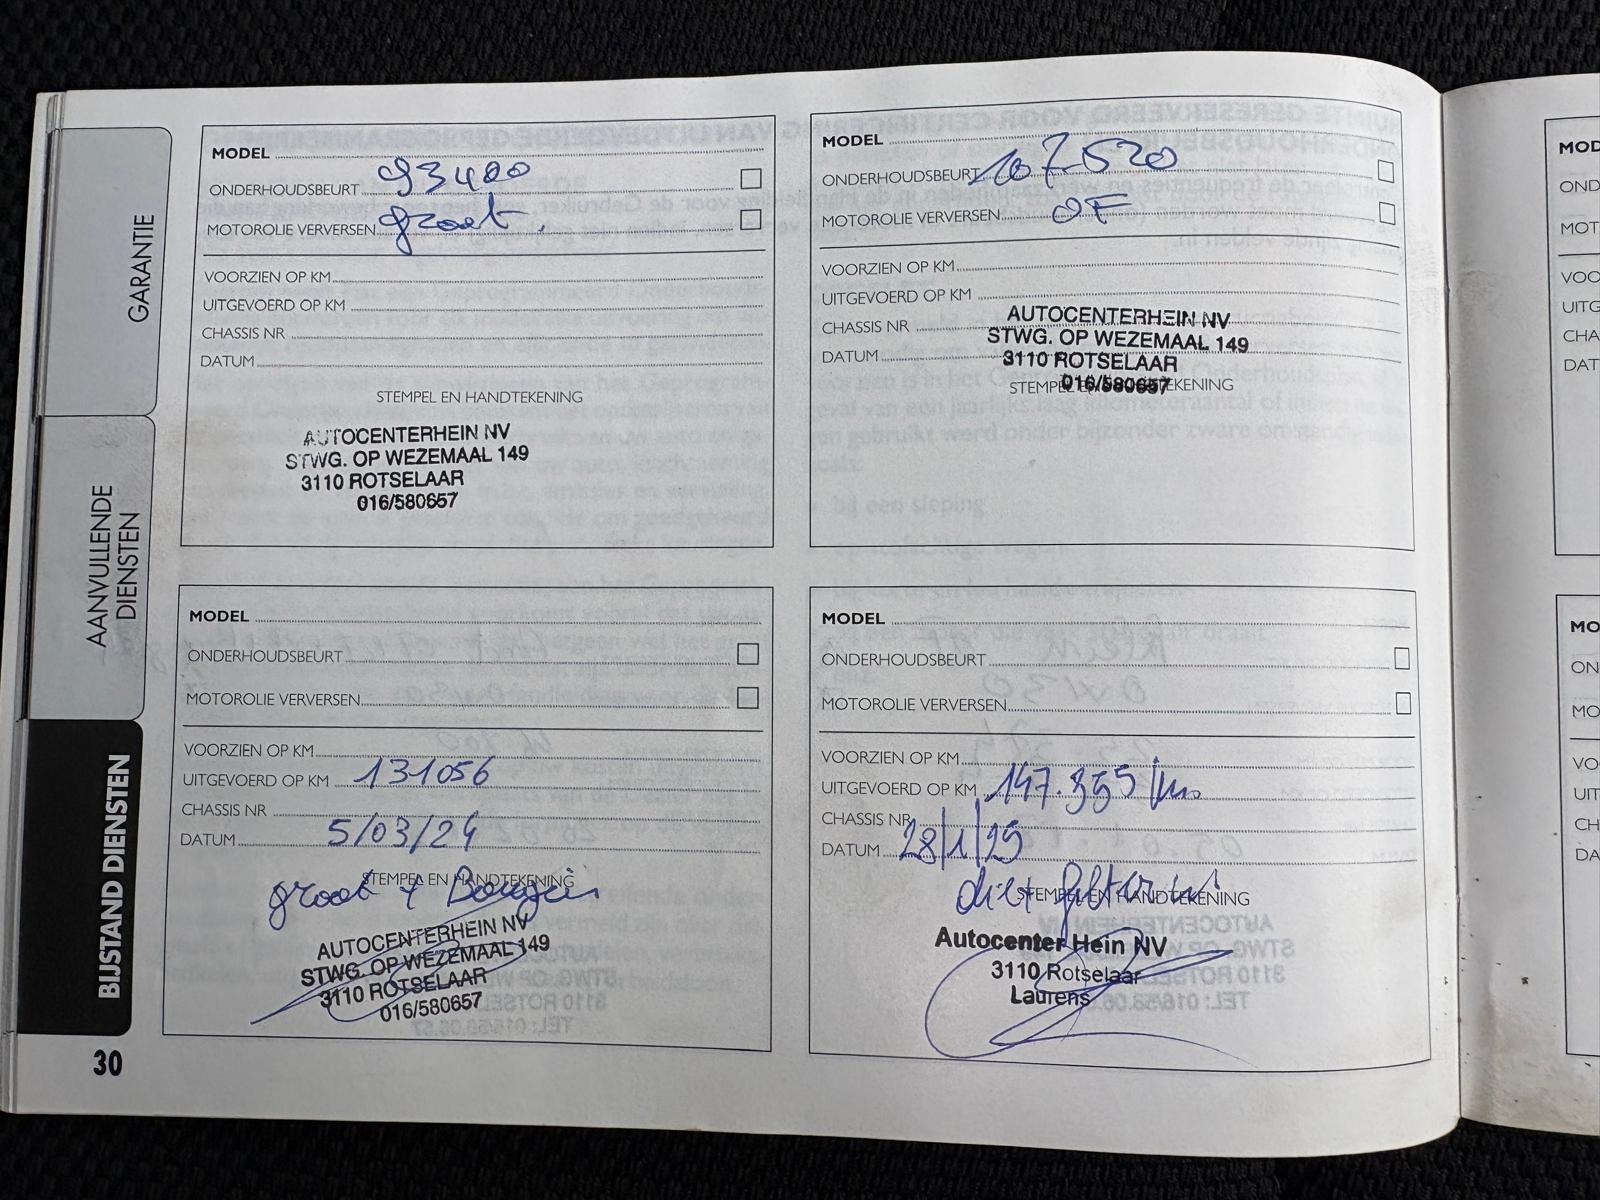 GARANTIE
AANVULLENDE
DIENSTEN
BIJSTAND DIENSTEN
MODEL
93400
ONDERHOUDSBEURT
groot.
MOTOROLIE VERVERSEN
VOORZIEN OP KM
UITGEVOERD OP KM
CHASSIS NR
DATUM
STEMPEL EN HANDTEKENING
AUTOCENTERHEIN NV
STWG. OP WEZEMAAL 149
3110 ROTSELAAR
016/580657
MODEL
ONDERHOUDSBEURT 107520
MOTOROLIE VERVERSEN OF
VOORZIEN OP KM
UITGEVOERD OP KM
CHASSIS NR
DATUM
AUTOCENTERHEIN NV
STWG. OP WEZEMAAL 149
3110 ROTSELAAR
STEMPEL EN HANDTEKENING
016/580657
MODEL
ONDERHOUDSBEURT
MOTOROLIE VERVERSEN
VOORZIEN OP KM
UITGEVOERD OP KM 131056
CHASSIS NR
DATUM 5/03/24
STEMPEL EN HANDTEKENING
groot + Bougies
AUTOCENTERHEIN NV
STWG. OP WEZEMAAL 149
3110 ROTSELAAR
016/580657
MODEL
ONDERHOUDSBEURT
MOTOROLIE VERVERSEN
VOORZIEN OP KM
UITGEVOERD OP KM 147.355 km
CHASSIS NR
DATUM 28/1/25
STEMPEL EN HANDTEKENING
Autocenter Hein NV
3110 Rotselaar
Laurens
30